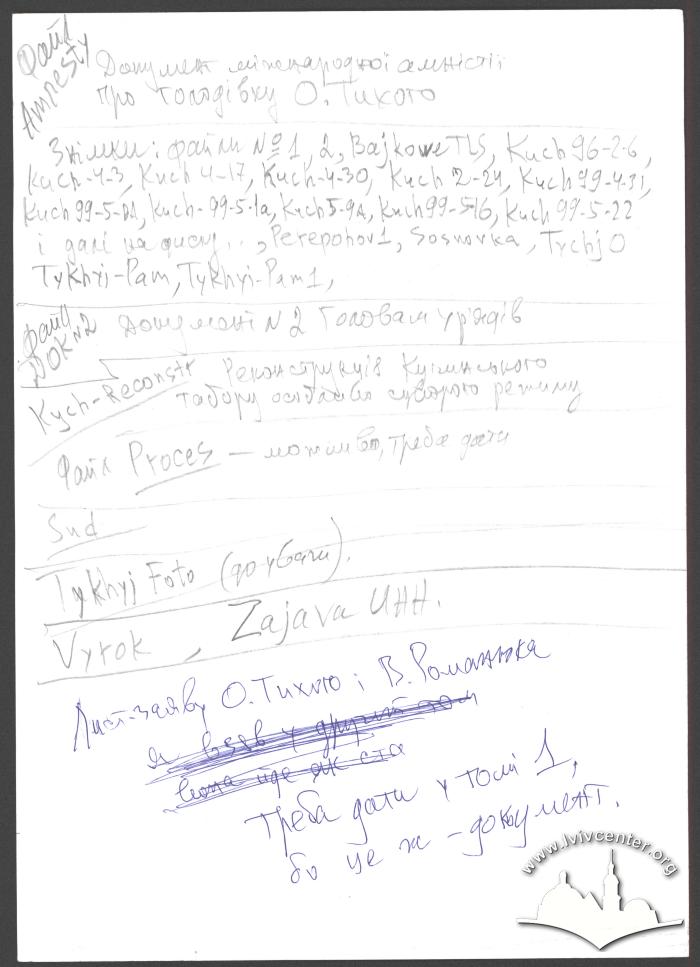 Файл
Amnesty
Документ міжнародної амністії
про голодівку О. Тихого
Знімки: файли №1, 2, BajkoweTLS, Kuch 96-2-6,
Kuch-4-3, Kuch 4-17, Kuch-4-30, Kuch 2-24, Kuch 99-4-31,
Kuch 99-5-DA, Kuch-99-5-1a, Kuch 5-9A, Kuch 99-5-16, Kuch 99-5-22
і далі на диску..., Perepohov1, Sosnovka, Tychj O
Tykhyj-Pam, Tykhyj-Pam1,
файл
DOK №2
Документ №2 Головам урядів
Kych-Reconstr
Реконструкція Кучинського
табору особливо суворого режиму
Файл Proces — можливо, треба дати
Sud
Tykhyj Foto (до уваги).
Vyrok, Zajava UHH.
Лист-заяву О. Тихого і В. Романюка
я взяв у другий том
вона йде як ста
треба дати у томі 1,
бо це ж - документ.
www.lvivcenter.org